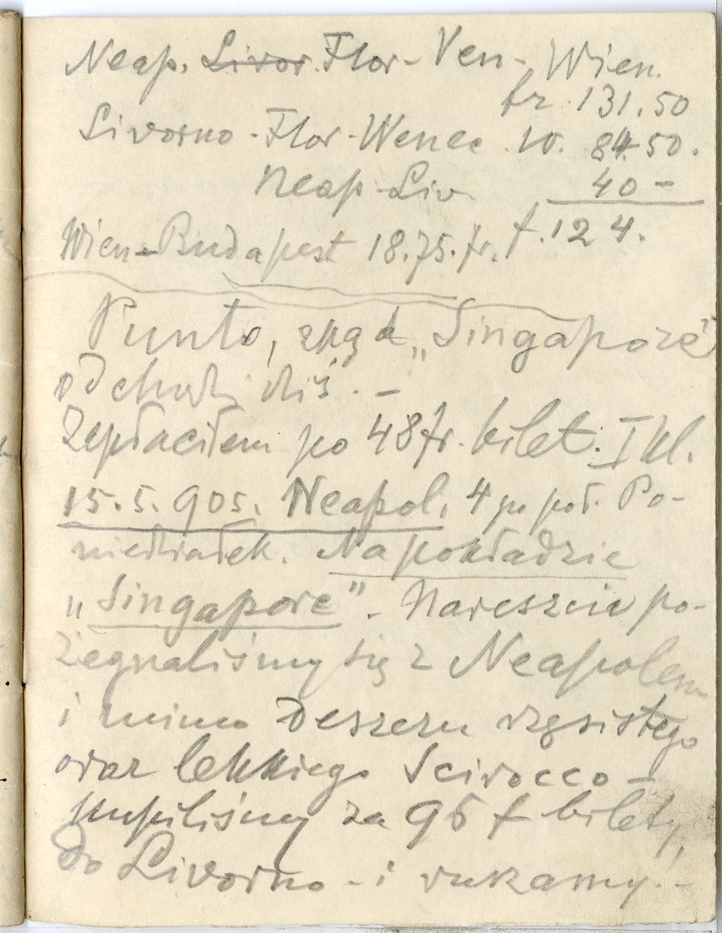 Neap. Livor. Flor - Ven - Wien.
fr. 131.50
Livorno - Flor - Wenec. 10. 84.50.
Neap - Liv 40 -
Wien - Budapest 18.75. fr. f. 124.
Punto, „Singapore"
odchodzi dziś. -
Zapłaciłem po 48 fr. bilet. I kl.
15.5.905. Neapol, 4 po poł. Po-
niedziałek. Na pokładzie
„Singapore". Nareszcie po-
żegnaliśmy się z Neapolem
i mimo Deszczu rzęsistego
oraz lekkiego Scirocco -
kupiliśmy za 96 f bilety
do Livorno - i ruszamy. -